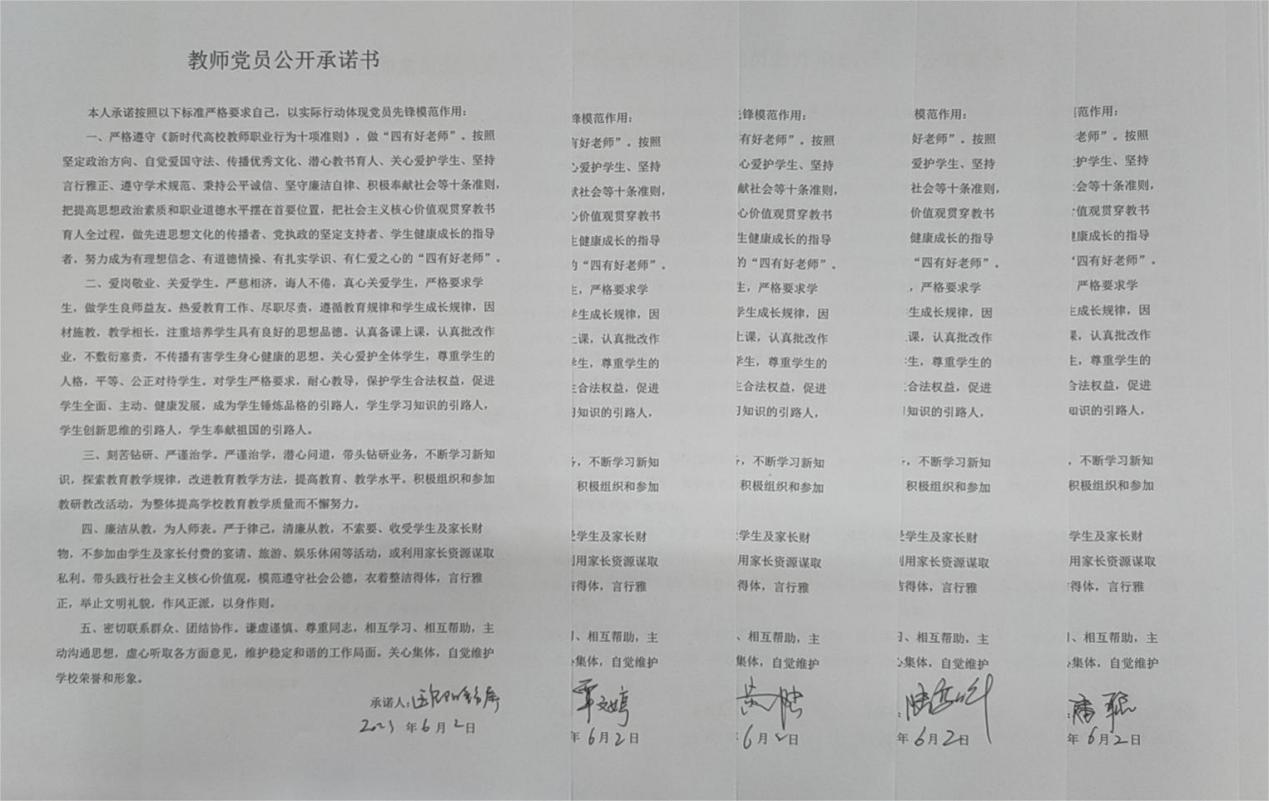 教师党员公开承诺书
本人承诺按照以下标准严格要求自己，以实际行动体现党员先锋模范作用：
一、严格遵守《新时代高校教师职业行为十项准则》，做“四有好老师”。按照
坚定政治方向、自觉爱国守法、传播优秀文化、潜心教书育人、关心爱护学生、坚持
言行雅正、遵守学术规范、秉持公平诚信、坚守廉洁自律、积极奉献社会等十条准则，
把提高思想政治素质和职业道德水平摆在首要位置，把社会主义核心价值观贯穿教书
育人全过程，做先进思想文化的传播者、党执政的坚定支持者、学生健康成长的指导
者，努力成为有理想信念、有道德情操、有扎实学识、有仁爱之心的“四有好老师”。
二、爱岗敬业、关爱学生。严慈相济，诲人不倦，真心关爱学生，严格要求学
生，做学生良师益友。热爱教育工作、尽职尽责，遵循教育规律和学生成长规律，因
材施教，教学相长，注重培养学生具有良好的思想品德。认真备课上课，认真批改作
业，不敷衍塞责，不传播有害学生身心健康的思想。关心爱护全体学生，尊重学生的
人格，平等、公正对待学生。对学生严格要求，耐心教导，保护学生合法权益，促进
学生全面、主动、健康发展，成为学生锤炼品格的引路人，学生学习知识的引路人，
学生创新思维的引路人，学生奉献祖国的引路人。
三、刻苦钻研、严谨治学。严谨治学，潜心问道，带头钻研业务，不断学习新知
识，探索教育教学规律，改进教育教学方法，提高教育、教学水平。积极组织和参加
教研教改活动，为整体提高学校教育教学质量而不懈努力。
四、廉洁从教，为人师表。严于律己，清廉从教，不索要、收受学生及家长财
物，不参加由学生及家长付费的宴请、旅游、娱乐休闲等活动，或利用家长资源谋取
私利。带头践行社会主义核心价值观，模范遵守社会公德，衣着整洁得体，言行雅
正，举止文明礼貌，作风正派，以身作则。
五、密切联系群众、团结协作。谦虚谨慎、尊重同志，相互学习、相互帮助，主
动沟通思想，虚心听取各方面意见，维护稳定和谐的工作局面。关心集体，自觉维护
学校荣誉和形象。
承诺人：
2023 年 6 月 2 日
锋模范作用：
有好老师”。按照
心爱护学生、坚持
献社会等十条准则，
心价值观贯穿教书
生健康成长的指导
的“四有好老师”。
生，严格要求学
学生成长规律，因
上课，认真批改作
学生，尊重学生的
生合法权益，促进
习知识的引路人，
务，不断学习新知
积极组织和参加
受学生及家长财
利用家长资源谋取
洁得体，言行雅
习、相互帮助，主
心集体，自觉维护
覃文婷
年 6 月 2 日
先锋模范作用：
有好老师”。按照
心爱护学生、坚持
献社会等十条准则，
心价值观贯穿教书
生健康成长的指导
的“四有好老师”。
生，严格要求学
学生成长规律，因
上课，认真批改作
学生，尊重学生的
生合法权益，促进
习知识的引路人，
务，不断学习新知
积极组织和参加
受学生及家长财
利用家长资源谋取
洁得体，言行雅
、相互帮助，主
集体，自觉维护
6 月 2 日
模范作用：
好老师”。按照
爱护学生、坚持
社会等十条准则，
价值观贯穿教书
健康成长的指导
“四有好老师”。
，严格要求学
生成长规律，因
课，认真批改作
生，尊重学生的
合法权益，促进
知识的引路人，
，不断学习新知
积极组织和参加
受学生及家长财
利用家长资源谋取
洁得体，言行雅
习、相互帮助，主
心集体，自觉维护
年 6 月 2 日
范作用：
老师”。按照
护学生、坚持
会等十条准则，
值观贯穿教书
健康成长的指导
“四有好老师”。
严格要求学
生成长规律，因
，认真批改作
生，尊重学生的
合法权益，促进
知识的引路人，
，不断学习新知
积极组织和参加
学生及家长财
用家长资源谋取
得体，言行雅
、相互帮助，主
集体，自觉维护
年 6 月 2 日